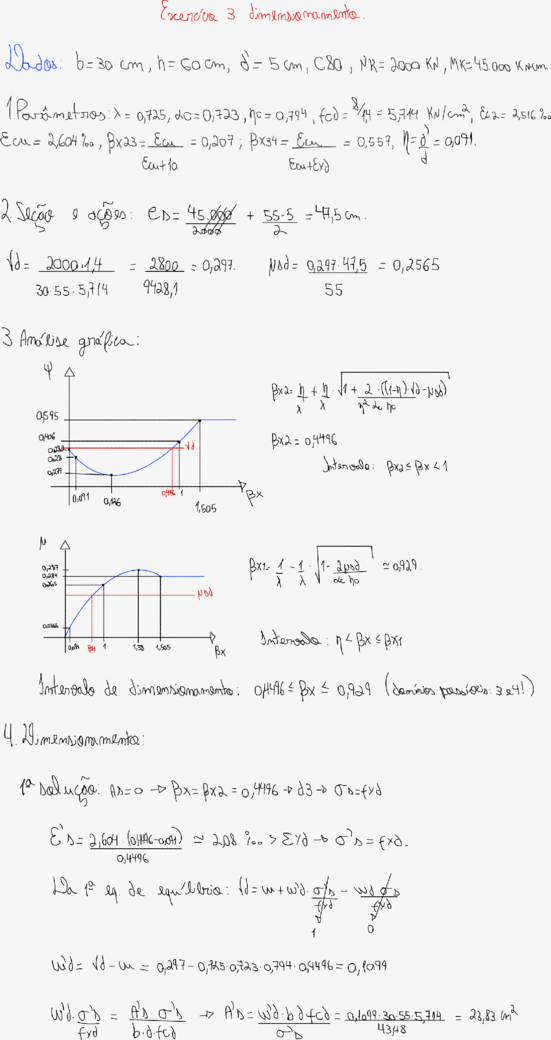 Exercício 3 dimensionamento.
Dados: b=30 cm, h=60 cm, d'=5 cm, C80, NK=2000 KN, MK=45.000 KNcm
1. Parâmetros: λ=0,725, αc=0,723, ηc=0,794, fcd=8/1,4=5,714 KN/cm², εc2=2,516‰
εcu=2,604‰, βx23=εcu/(εcu+10)=0,207; βx34=εcu/(εcu+εyd)=0,557, η=d'/d=0,091.
2 Seção e ações: es=45.000/2000 + (55-5)/2 = 47,5 cm.
νd=2000·1,4/(30·55·5,714) = 2800/9428,1 = 0,297. μsd=0,297·47,5/55 = 0,2565
3 Análise gráfica:
ψ
βx2=η/λ + η/λ·√(1+2·((1-η)·νd-μsd)/(η²αcηc))
0,595
0,406
νd
βx2=0,4496
Intervalo: βx2≤βx<1
0,091
1
βx
1,505
μ
βx1=1/λ-1/λ·√(1-2μsd/(αcηc)) ≃0,929.
0,287
0,265
μsd
Intervalo: η<βx≤βx1
1
1,505
βx
Intervalo de dimensionamento: 0,4496≤βx≤0,929 (domínios possíveis: 3 e 4!)
4. Dimensionamento:
1ª solução: As=0→βx=βx2=0,4496→d3→σs=fyd
ε's=2,604·(0,4496-0,091)/0,4496 ≃ 2,08‰>εyd→σ's=fyd.
Da 1ª eq. de equilíbrio: νd=ω+ω'd·σ's/fyd-ωd·σs/fyd
1
0
ω'd=νd-ω=0,297-0,725·0,723·0,794·0,4496=0,1099
ω'd·σ's/fyd=A's·σ's/(b·d·fcd) → A's=ω'd·b·d·fcd/σ's=0,1099·30·55·5,714/43,48=23,83 cm²